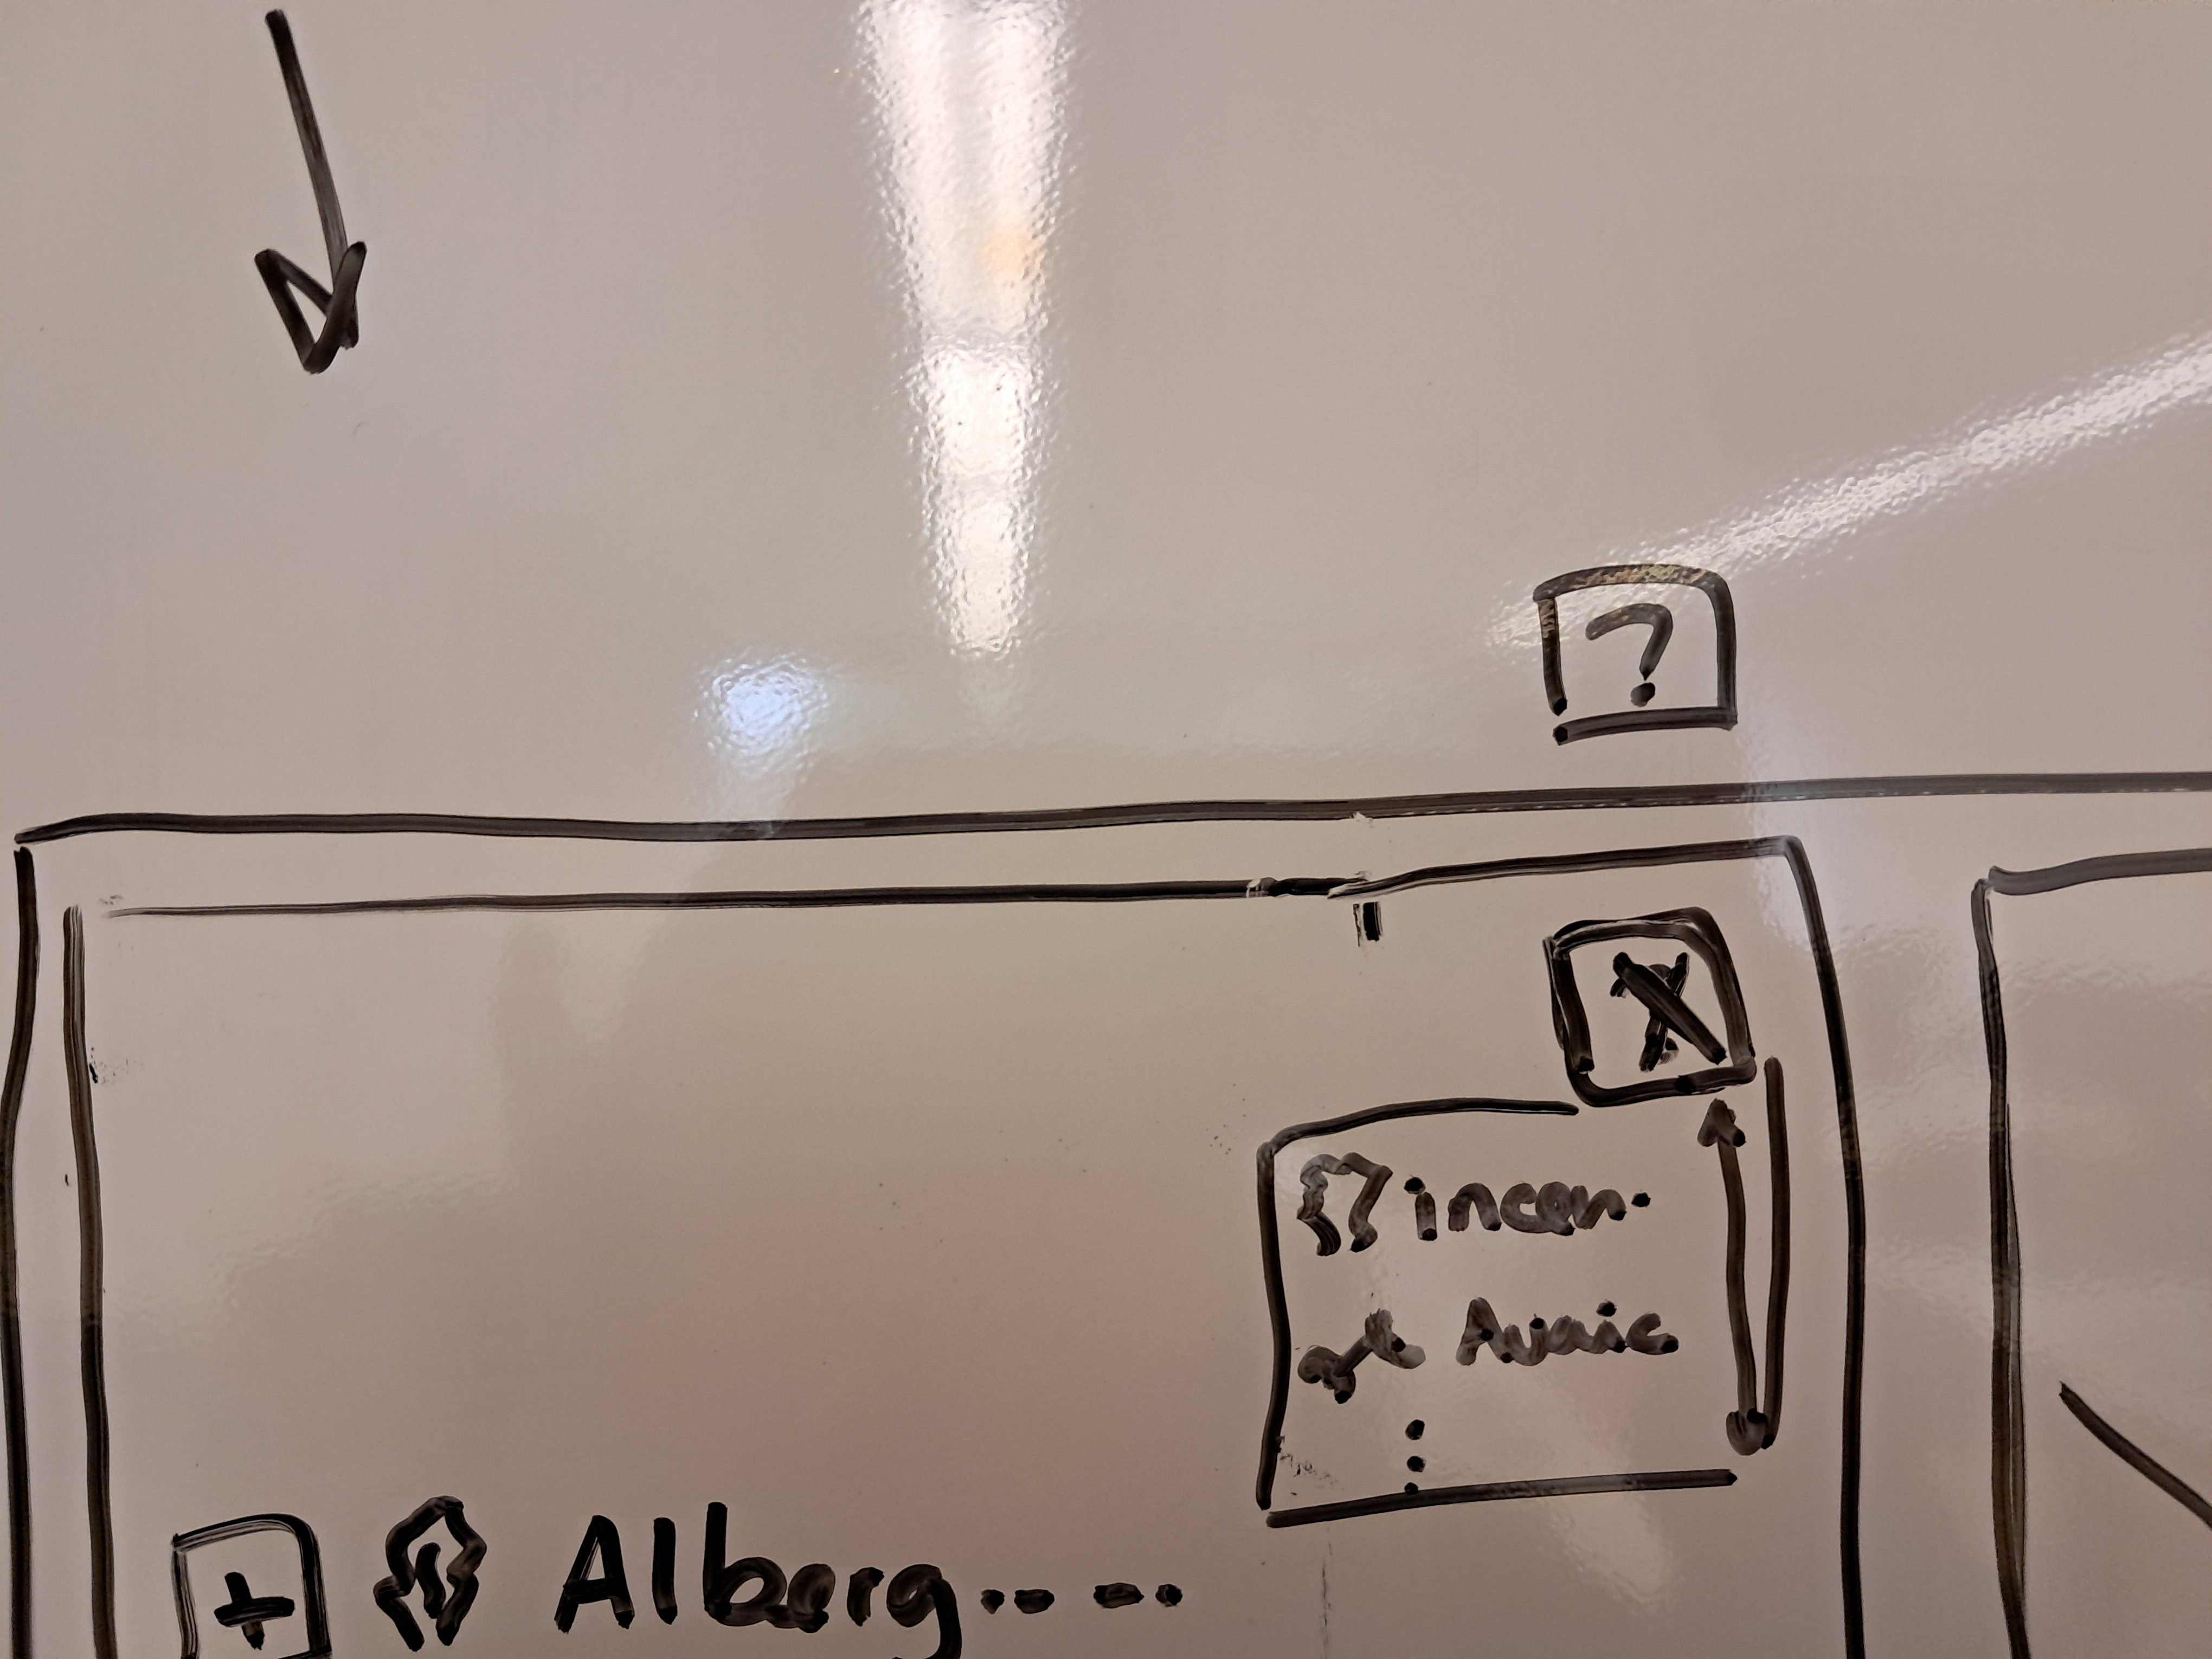 ?
X
incen.
Avaic
+ Alberg.. -.